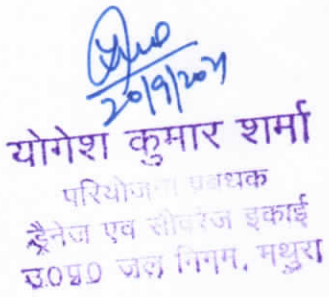 20/9/2021
योगेश कुमार शर्मा
परियोजना प्रबन्धक
ड्रैनेज एव सीवरेज इकाई
उ०प्र० जल निगम, मथुरा